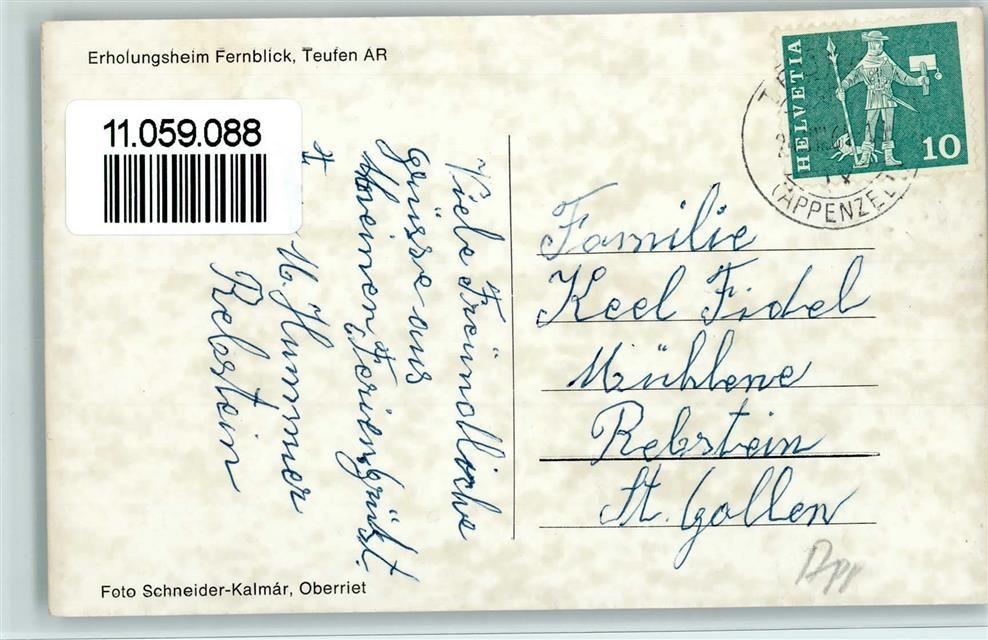 Erholungsheim Fernblick, Teufen AR
11.059.088
HELVETIA
10
(APPENZELL
Viele Freündliche
Grüsse aus
meinen Ferien, grüsst.
M. Hummer
Rebstein
Familie
Keel Fidel
Mühlene
Rebstein
St. Gallen
App
Foto Schneider-Kalmár, Oberriet